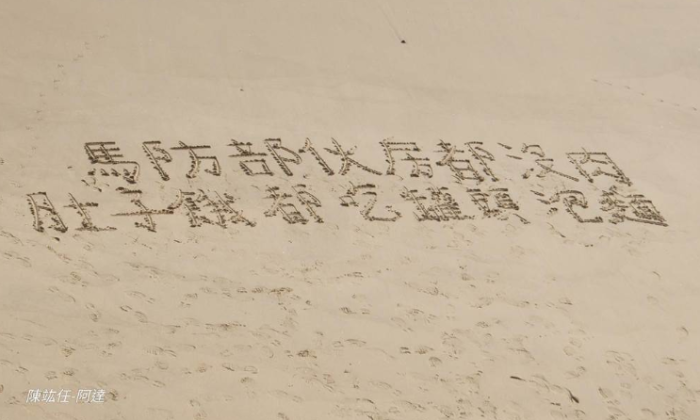 馬防部伙居都沒肉
肚子餓都吃罐頭泡麵
陳竑任-阿達